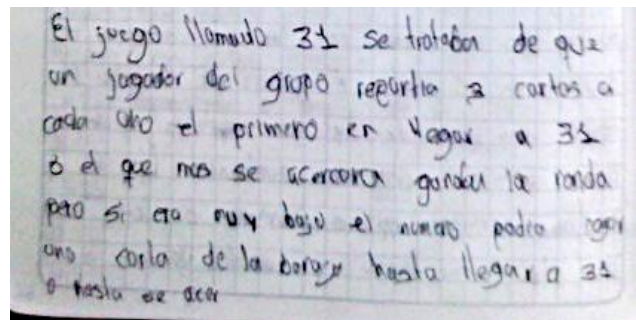 El juego llamado 31 se trataba de que
un jugador del grupo repartia 3 cartas a
cada uno el primero en llegar a 31
o el que mas se acercara ganaba la ronda
pero si era muy bajo el numero podia coger
una carta de la baraja hasta llegar a 31
o hasta se acer